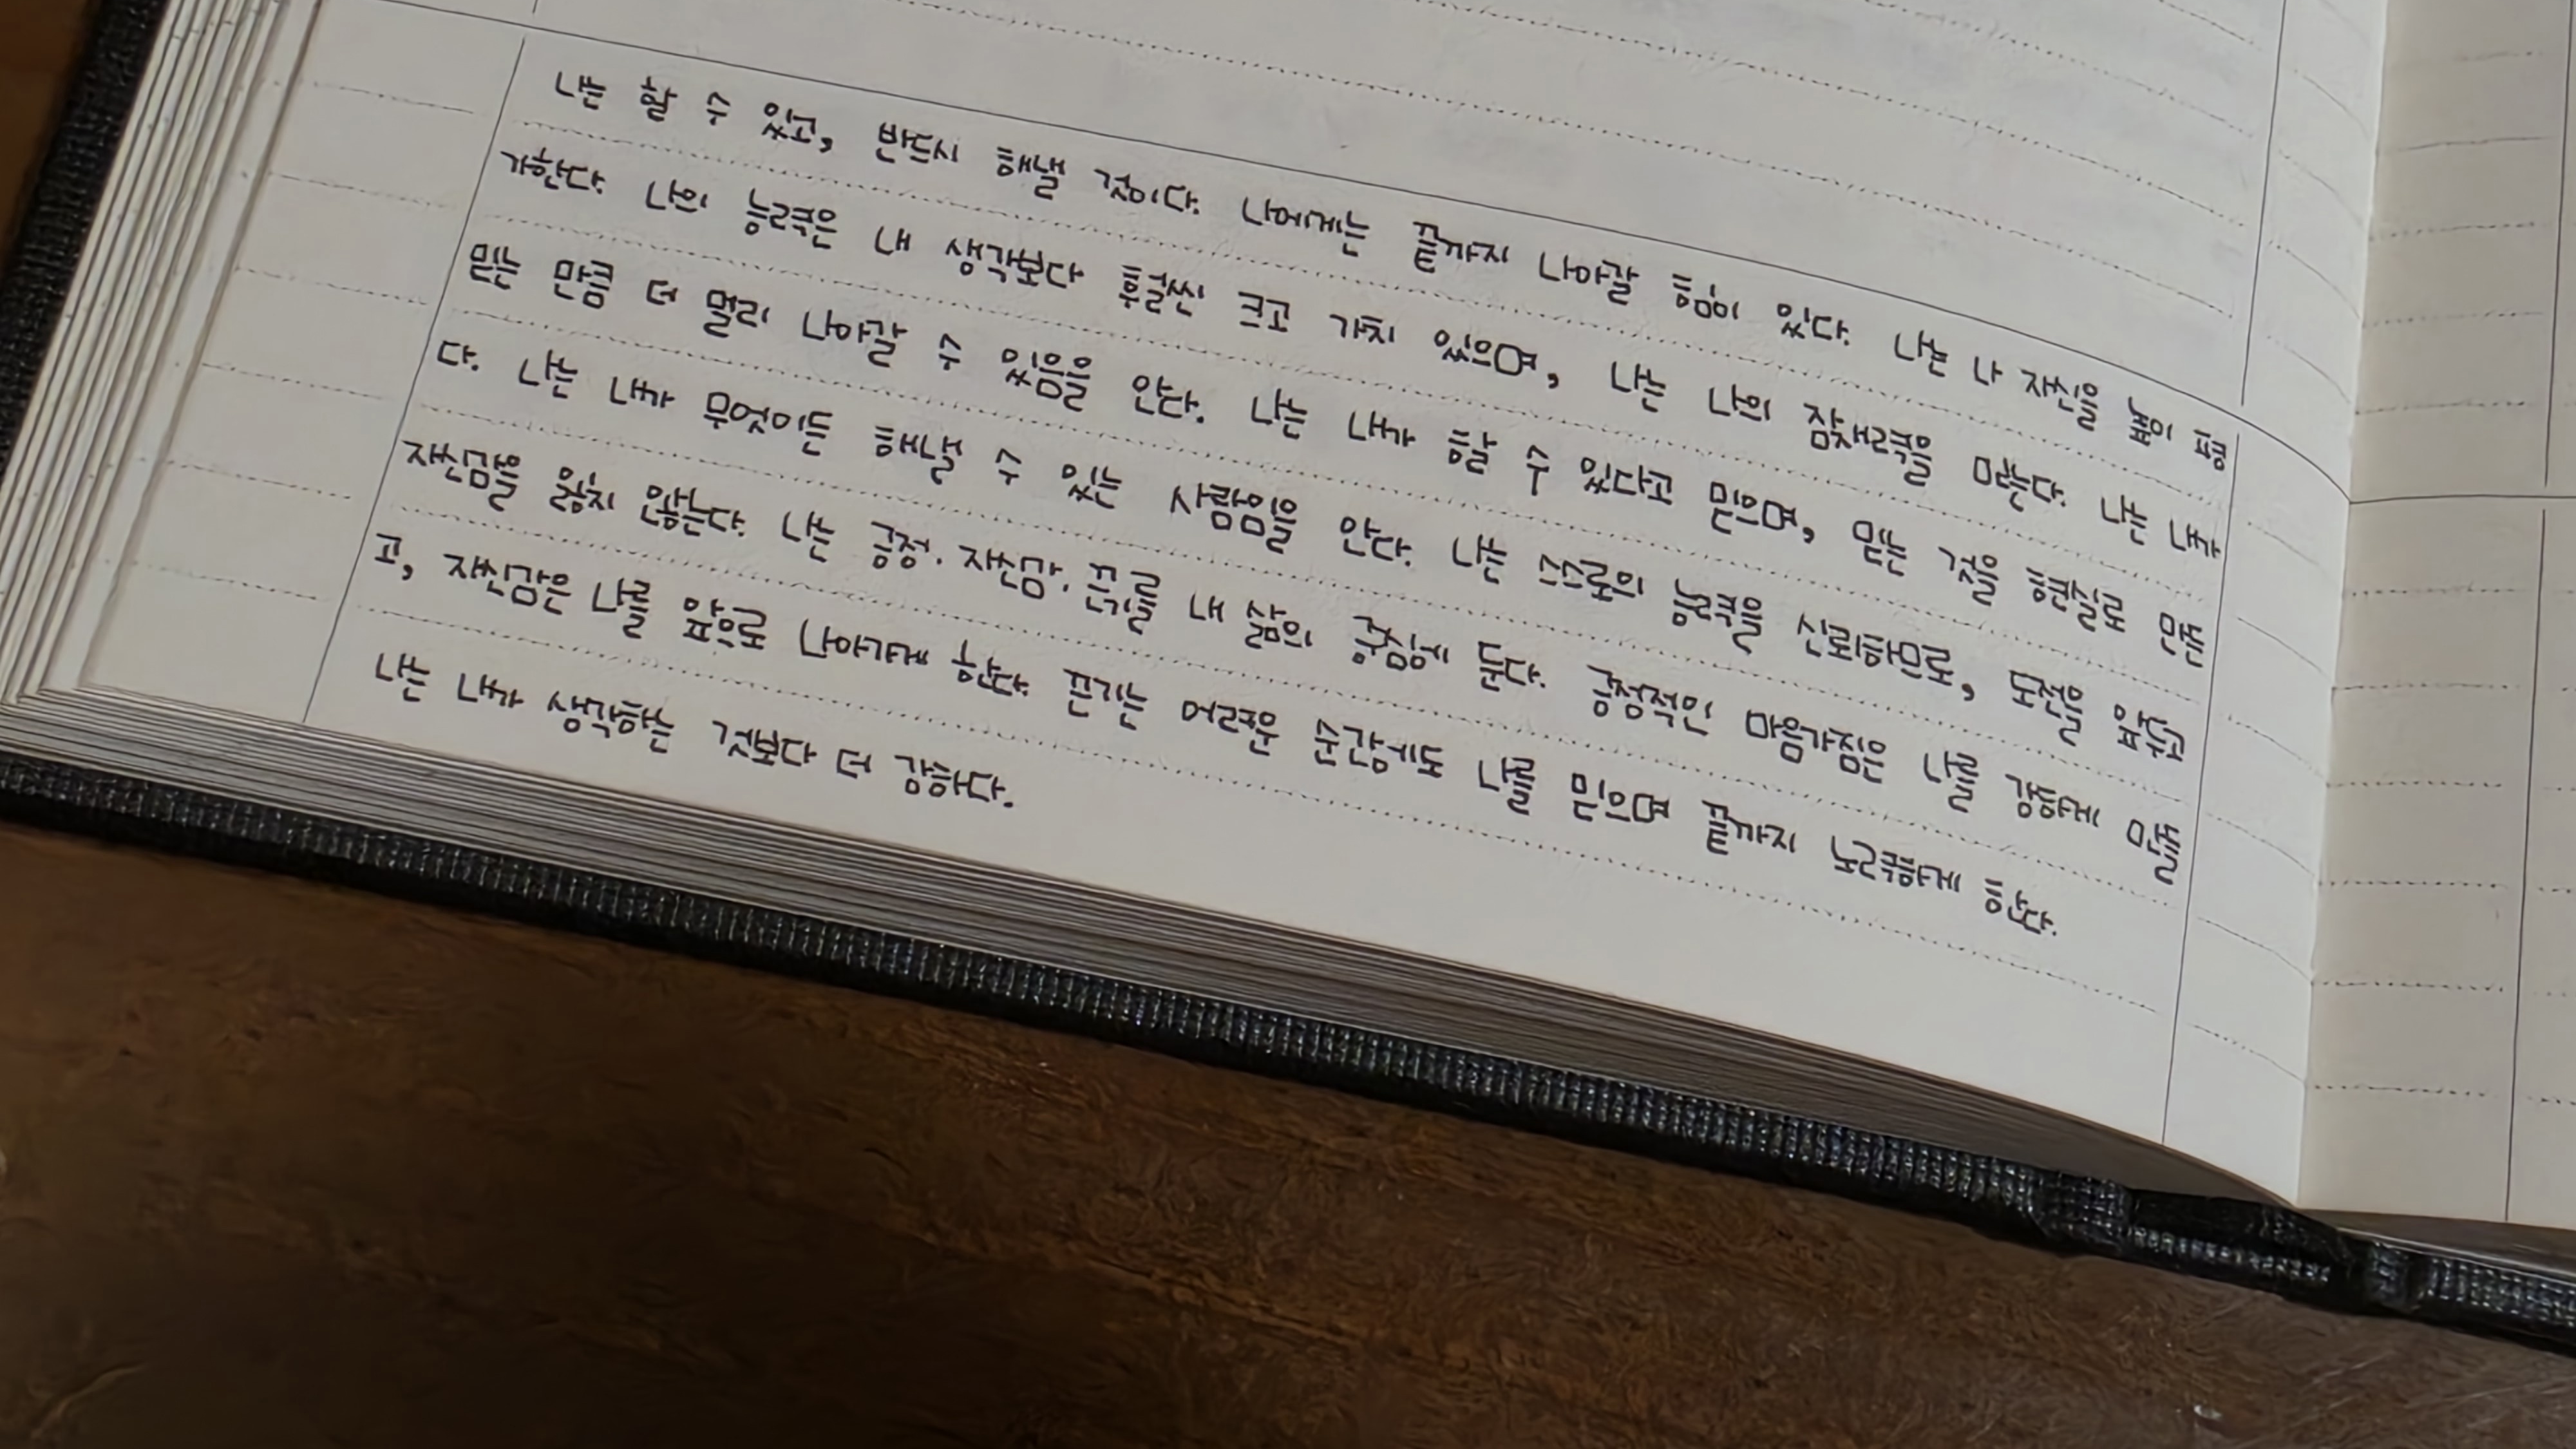 나는 할 수 있고, 반드시 해낼 것이다. 나에게는 끝까지 나아갈 힘이 있다. 나는 나 자신을 높이 평
가한다. 나의 능력은 내 생각보다 훨씬 크고 가치 있으며, 나는 나의 잠재력을 믿는다. 나는 내가
믿는 만큼 더 멀리 나아갈 수 있음을 안다. 나는 내가 할 수 있다고 믿으며, 믿는 것을 현실로 만든
다. 나는 내가 무엇이든 해낼 수 있는 사람임을 안다. 나는 스스로의 능력을 신뢰하므로, 도전을 앞두고
자신감을 잃지 않는다. 나는 긍정·자신감·끈기를 내 삶의 중심에 둔다. 긍정적인 마음가짐은 나를 강하게 만들
고, 자신감은 나를 앞으로 나아가게 한다. 끈기는 어려운 순간에도 나를 믿으며 끝까지 노력하게 한다.
나는 내가 생각하는 것보다 더 강하다.